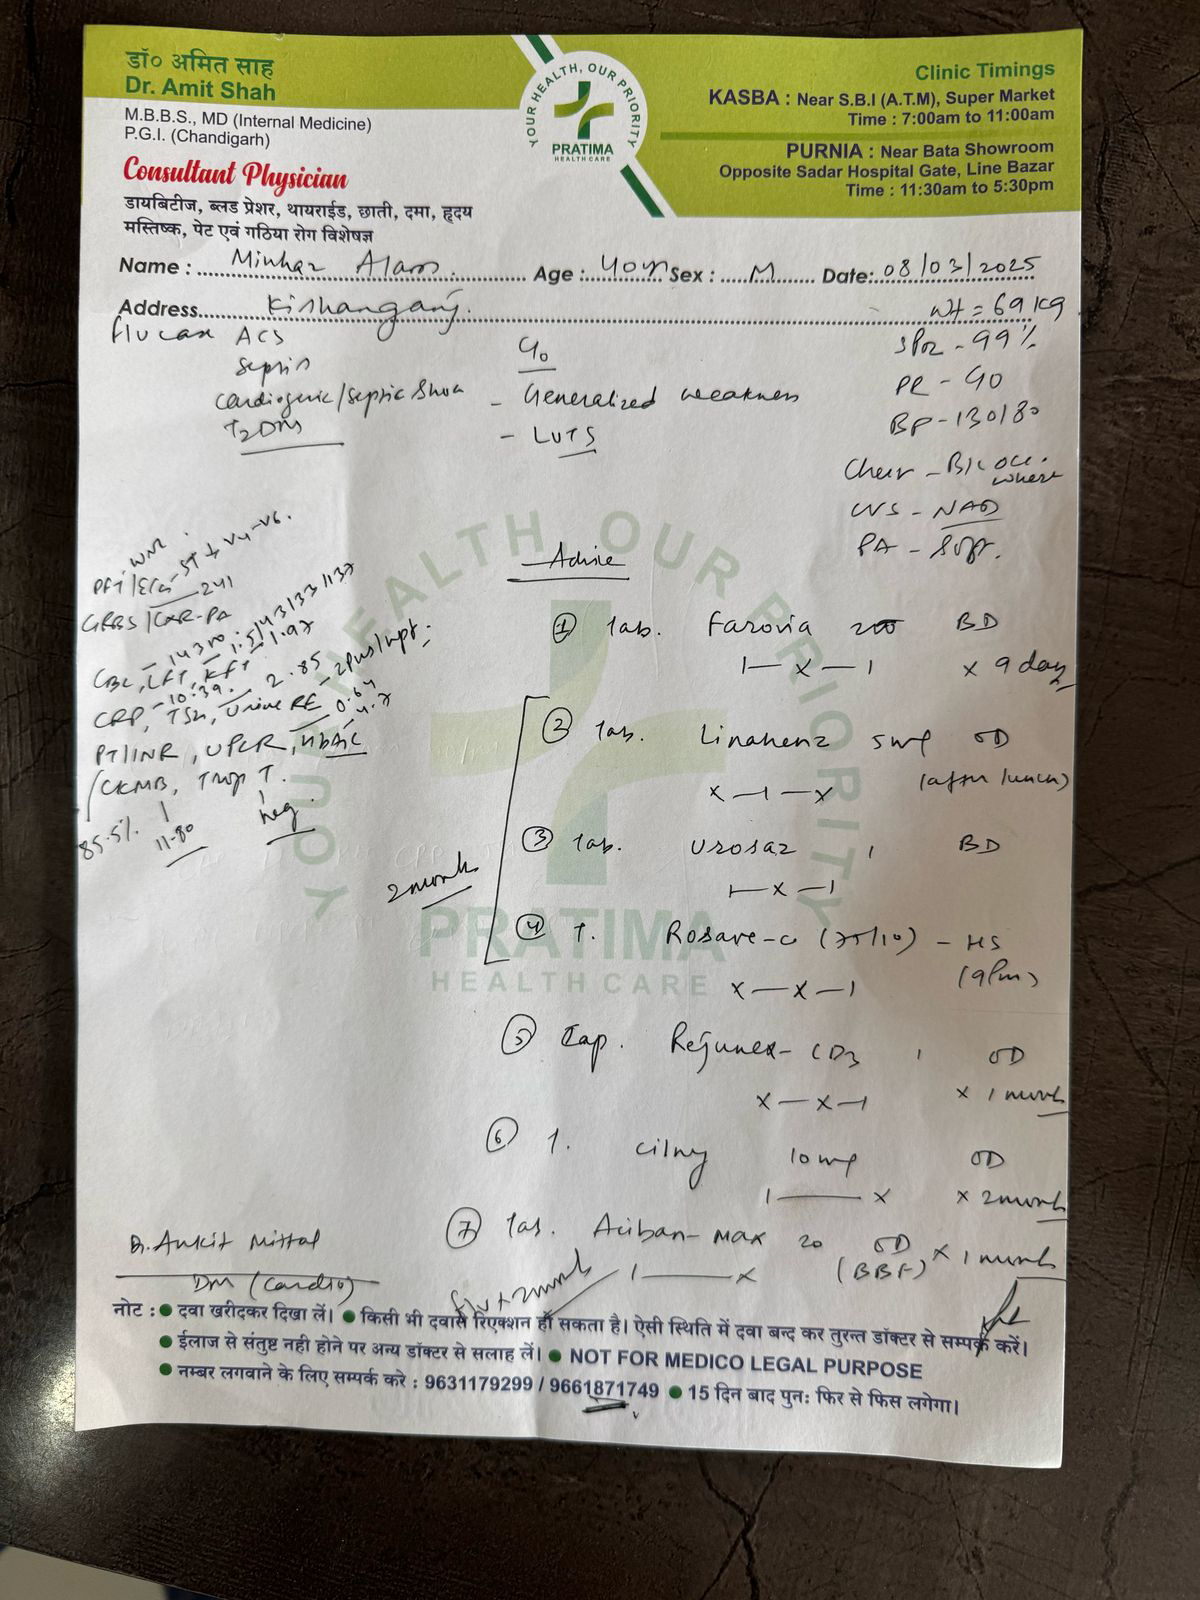 डॉ० अमित साह
Dr. Amit Shah
M.B.B.S., MD (Internal Medicine)
P.G.I. (Chandigarh)
Consultant Physician
डायबिटीज, ब्लड प्रेशर, थायराईड, छाती, दमा, हृदय
मस्तिष्क, पेट एवं गठिया रोग विशेषज्ञ
YOUR HEALTH, OUR PRIORITY
PRATIMA
HEALTH CARE
Clinic Timings
KASBA : Near S.B.I (A.T.M), Super Market
Time : 7:00am to 11:00am
PURNIA : Near Bata Showroom
Opposite Sadar Hospital Gate, Line Bazar
Time : 11:30am to 5:30pm
Name : Minhaz Alam Age : 40yr Sex : M Date: 08/03/2025
Address Kishanganj
wt = 69 kg
ACS
Sepsis
Cardiogenic/Septic Shock
T2DM
C/o
- Generalized weakness
- LUTS
SPO2 - 99%
PR - 90
BP - 130/80
Chest - B/L
CVS - NAD
PA - Soft.
ST V4-V6
241
GRBS/CXR-PA
14300 1.5/43/33/137
CBC, LFT, KFT 1.97
10.39. 2.85
CRP, TSH, Urine RE
0.64
PT/INR, UPCR, HbA1c
CKMB, Trop T.
85.5% 11.80 Neg.
Advice
① Tab. Farovia 200 BD
1 — x — 1 x 9 day
② Tab. 5mg OD
x — 1 — x (after lunch)
③ Tab. Urosaz 1 BD
1 — x — 1
2 month
④ T. Rosave-C (75/10) - HS
x — x — 1 (9pm)
⑤ Cap. Rejunex-CD3 1 OD
x — x — 1 x 1 month
⑥ T. Cilny 10mg OD
1 — x x 2 month
⑦ Tab. Aciban-Max 20 OD x 1 month
1 — x (BBF)
Dr. Ankit Mittal
DM (Cardio)
YOUR HEALTH OUR PRIORITY
PRATIMA
HEALTH CARE
नोट : ● दवा खरीदकर दिखा लें। ● किसी भी दवासे रिएक्शन हो सकता है। ऐसी स्थिति में दवा बन्द कर तुरन्त डॉक्टर से सम्पर्क करें।
● ईलाज से संतुष्ट नही होने पर अन्य डॉक्टर से सलाह लें। ● NOT FOR MEDICO LEGAL PURPOSE
● नम्बर लगवाने के लिए सम्पर्क करे : 9631179299 / 9661871749 ● 15 दिन बाद पुनः फिर से फिस लगेगा।